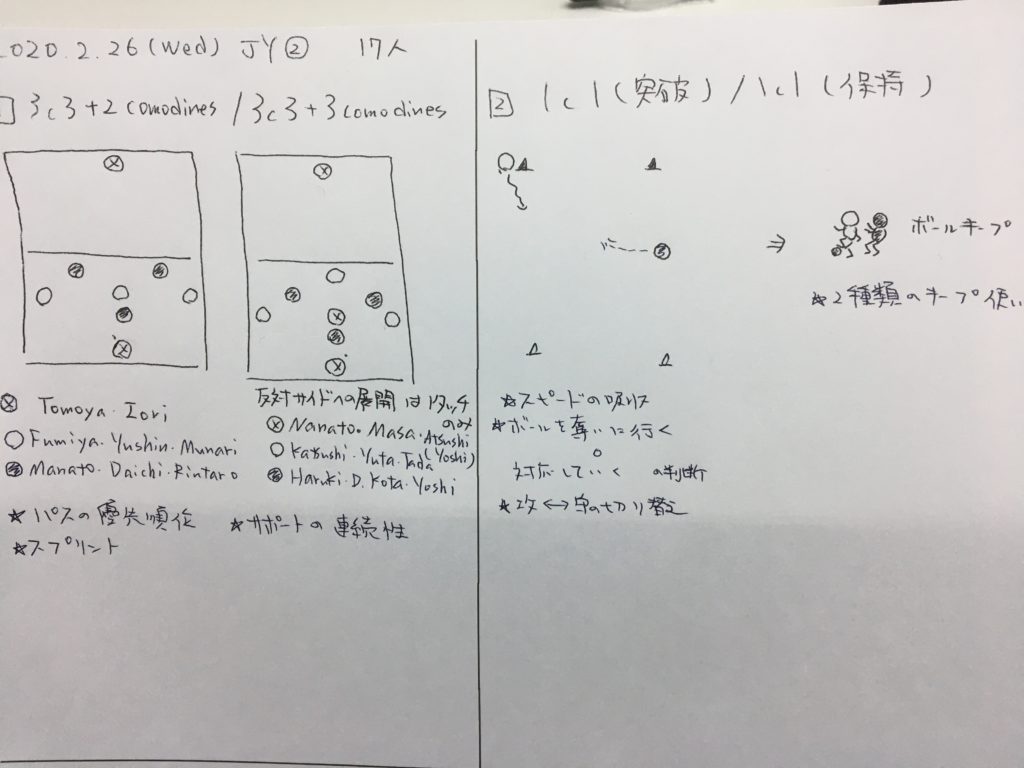 2020.2.26(Wed) JY② 17人
1 3c3+2 comodines / 3c3+3 comodines
反対サイドへの展開は1タッチのみ
Tomoya・Iori
Fumiya・Yushin・Munari
Manato・Daichi・Rintaro
Nanato・Masa・Atsushi(Yoshi)
Katsushi・Yuta・Tada
Haruki・D.Kota・Yoshi
★パスの優先順位
★スプリント
★サポートの連続性
2 1c1(突破)/1c1(保持)
⇒ ボールキープ
★2種類のキープ使い
★スピードの吸収
★ボールを奪いに行く
対応していく の判断
★攻↔守の切り替え